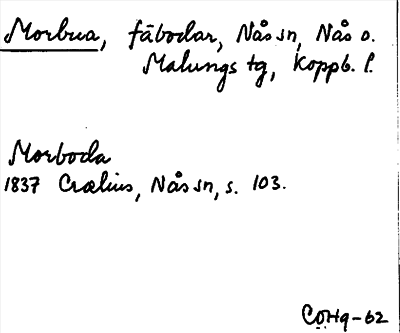 Morbua, fäbodar, Nås sn, Nås o.
Malungs tg, Koppb. l.
Morboda
1837 Crælius, Nås sn, s. 103.
COHg-62